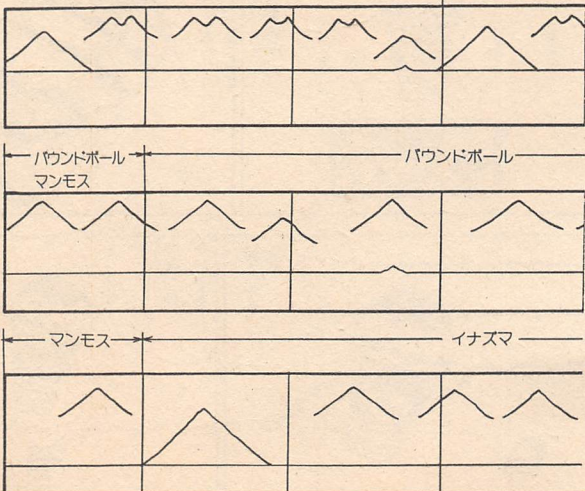 バウンドボール
マンモス
バウンドボール
マンモス
イナズマ